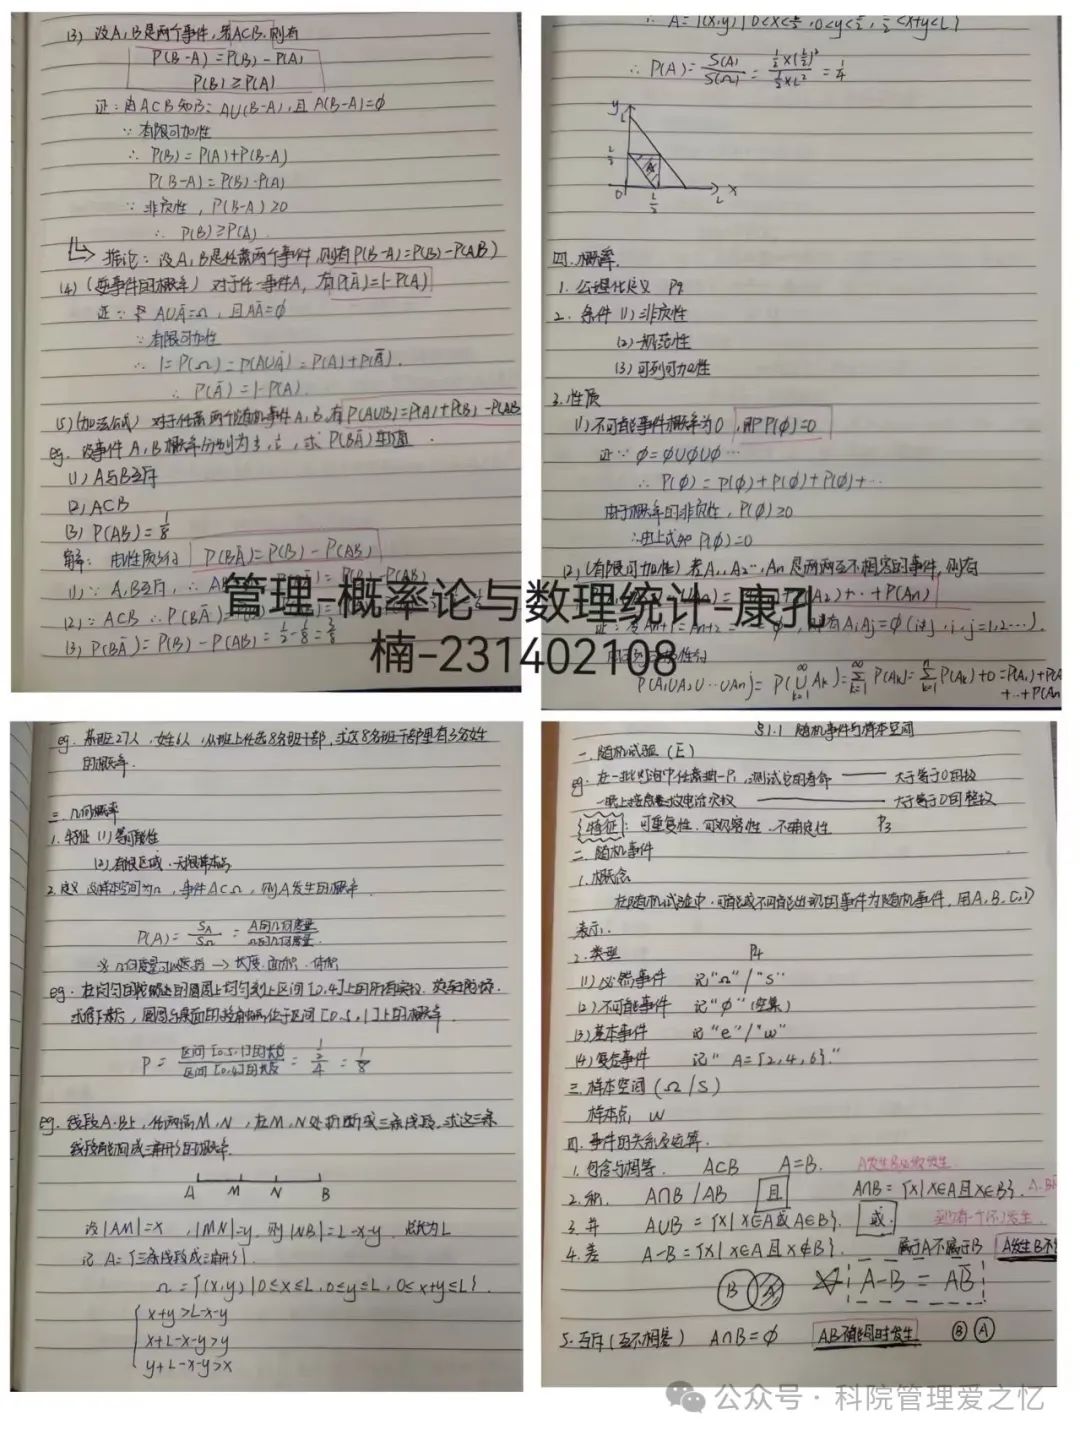 (3) 设A,B是两个事件,若A⊂B,则有
P(B-A)=P(B)-P(A)
P(B)≥P(A)
证:由A⊂B知B=A∪(B-A),且A(B-A)=∅
∵有限可加性
∴P(B)=P(A)+P(B-A)
P(B-A)=P(B)-P(A)
∵非负性,P(B-A)≥0
∴P(B)≥P(A)
推论:设A,B是任意两个事件,则有P(B-A)=P(B)-P(AB)
(4)(逆事件的概率) 对于任一事件A,有P(Ā)=1-P(A)
证∵ A∪Ā=Ω,且AĀ=∅
∵有限可加性
∴1=P(Ω)=P(A∪Ā)=P(A)+P(Ā).
∴P(Ā)=1-P(A)
(5)(加法公式) 对于任意两个随机事件A,B,有P(A∪B)=P(A)+P(B)-P(AB
eg. 设事件A,B概率分别为1/3,1/2,求P(BĀ)的值.
(1) A与B互斥
(2) A⊂B
(3) P(AB)=1/8
解: 由性质得 P(BĀ)=P(B)-P(AB)
(1)∵A,B互斥,∴
(2)∵A⊂B ∴P(BĀ)
(3) P(BĀ)=P(B)-P(AB)=1/2-1/8=3/8
∴ A={(x,y)|0<x<L/2,0<y<L/2,L/2<x+y<L}
∴P(A)=S(A)/S(Ω)=(1/2×(L/2)²)/(1/2×L²)=1/4
y
L
L/2
A
0
L/2
L
x
四.概率.
1. 公理化定义 P9
2. 条件 (1)非负性
(2)规范性
(3)可列可加性
3.性质
(1)不可能事件概率为0,即P(∅)=0
证∵∅=∅∪∅∪∅…
∴P(∅)=P(∅)+P(∅)+P(∅)+…
由于概率的非负性,P(∅)≥0
∴由上式知P(∅)=0
(2)(有限可加性) 若A₁,A₂…,An是两两互不相容的事件,则有
∪An)= A₂)+…+P(An)
AiAj=∅(i≠j,i,j=1,2…).
P(A₁∪A₂∪…∪An)=P(∪Ak)=ΣP(Ak)=ΣP(Ak)+0=P(A₁)+P(A
+…+P(An
管理-概率论与数理统计-康孔
楠-231402108
eg. 某班27人,女生6人,从班上任选8名班干部,求这8名班干部里有3名女生
的概率.
三.几何概率
1.特征 (1)等可能性
(2)有限区域、无限样本点
2.定义 设样本空间为Ω,事件A⊂Ω,则A发生的概率
P(A)=S_A/S_Ω=A的几何度量/Ω的几何度量.
※几何度量可以是指→长度.面积.体积
求停下来后,圆周与桌面的接触点位于区间[0.5,1]上的概率.
P=区间[0.5,1]的长度/区间[0,4]的长度=(1/2)/4=1/8
eg. 线段A.B上,任取两点M,N,在M,N处折断成三条线段,求这三条
线段能构成三角形的概率.
A M N B
设|AM|=x,|MN|=y,则|NB|=L-x-y 总长为L
记A={三条线段成三角形}.
Ω={(x,y)|0≤x≤L,0≤y≤L,0≤x+y≤L}
x+y>L-x-y
x+L-x-y>y
y+L-x-y>x
§1.1 随机事件与样本空间
一.随机试验(E)
eg. 在一批灯泡中任意抽一只,测试它的寿命 —— 大于等于0的数
—— 大于等于0的整数
特征:可重复性,可观察性,不确定性 P3
二.随机事件
1.概念
在随机试验中,可能或不可能出现的事件为随机事件,用A,B,C,D
表示.
2.类型 P4
(1)必然事件 记"Ω"/"S"
(2)不可能事件 记"∅"(空集)
(3)基本事件 记"e"/"w"
(4)复合事件 记"A={2,4,6}."
三.样本空间(Ω/S)
样本点 w
四.事件的关系及运算.
1.包含与相等. A⊂B A=B. A发生B必然发生.
2.积. A∩B/AB 且 A∩B={x|x∈A且x∈B}.
3.并 A∪B={x|x∈A或A∈B}. 或. 至少有一个发生.
4.差 A-B={x|x∈A且x∉B}. 属于A不属于B A发生B不
B A A-B=AB̄
5.互斥(互不相容) A∩B=∅ AB不能同时发生 B A
公众号·科院管理爱之忆